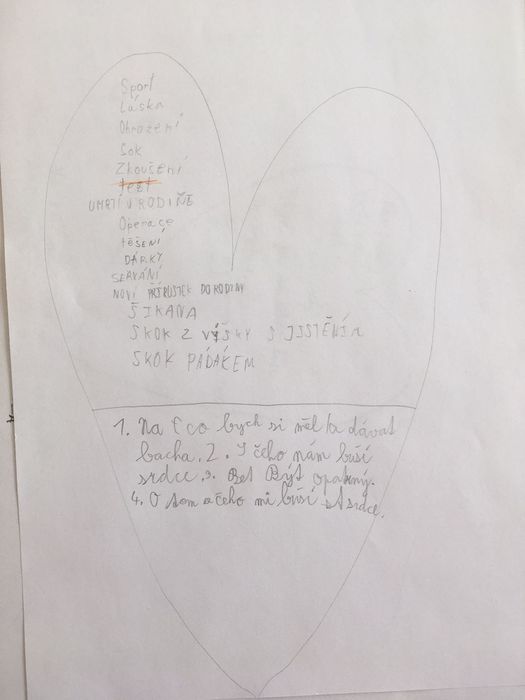 Sport
Láska
Ohrožení
Šok
Zkoušení
Test
UMRTÍ V RODIŇE
Operace
těšení
DÁRKY
SERVÁNÍ
NOVÍ PŘÍRUSTEK DO RODINY
ŠIKANA
SKOK Z VÝŠKY S JISTĚNÍM
SKOK PADÁKEM
1. Na co bych si měl dávat
bacha. 2. S čeho nám buší
srdce. 3. Být opatrný.
4. O tom z čeho mi buší srdce.